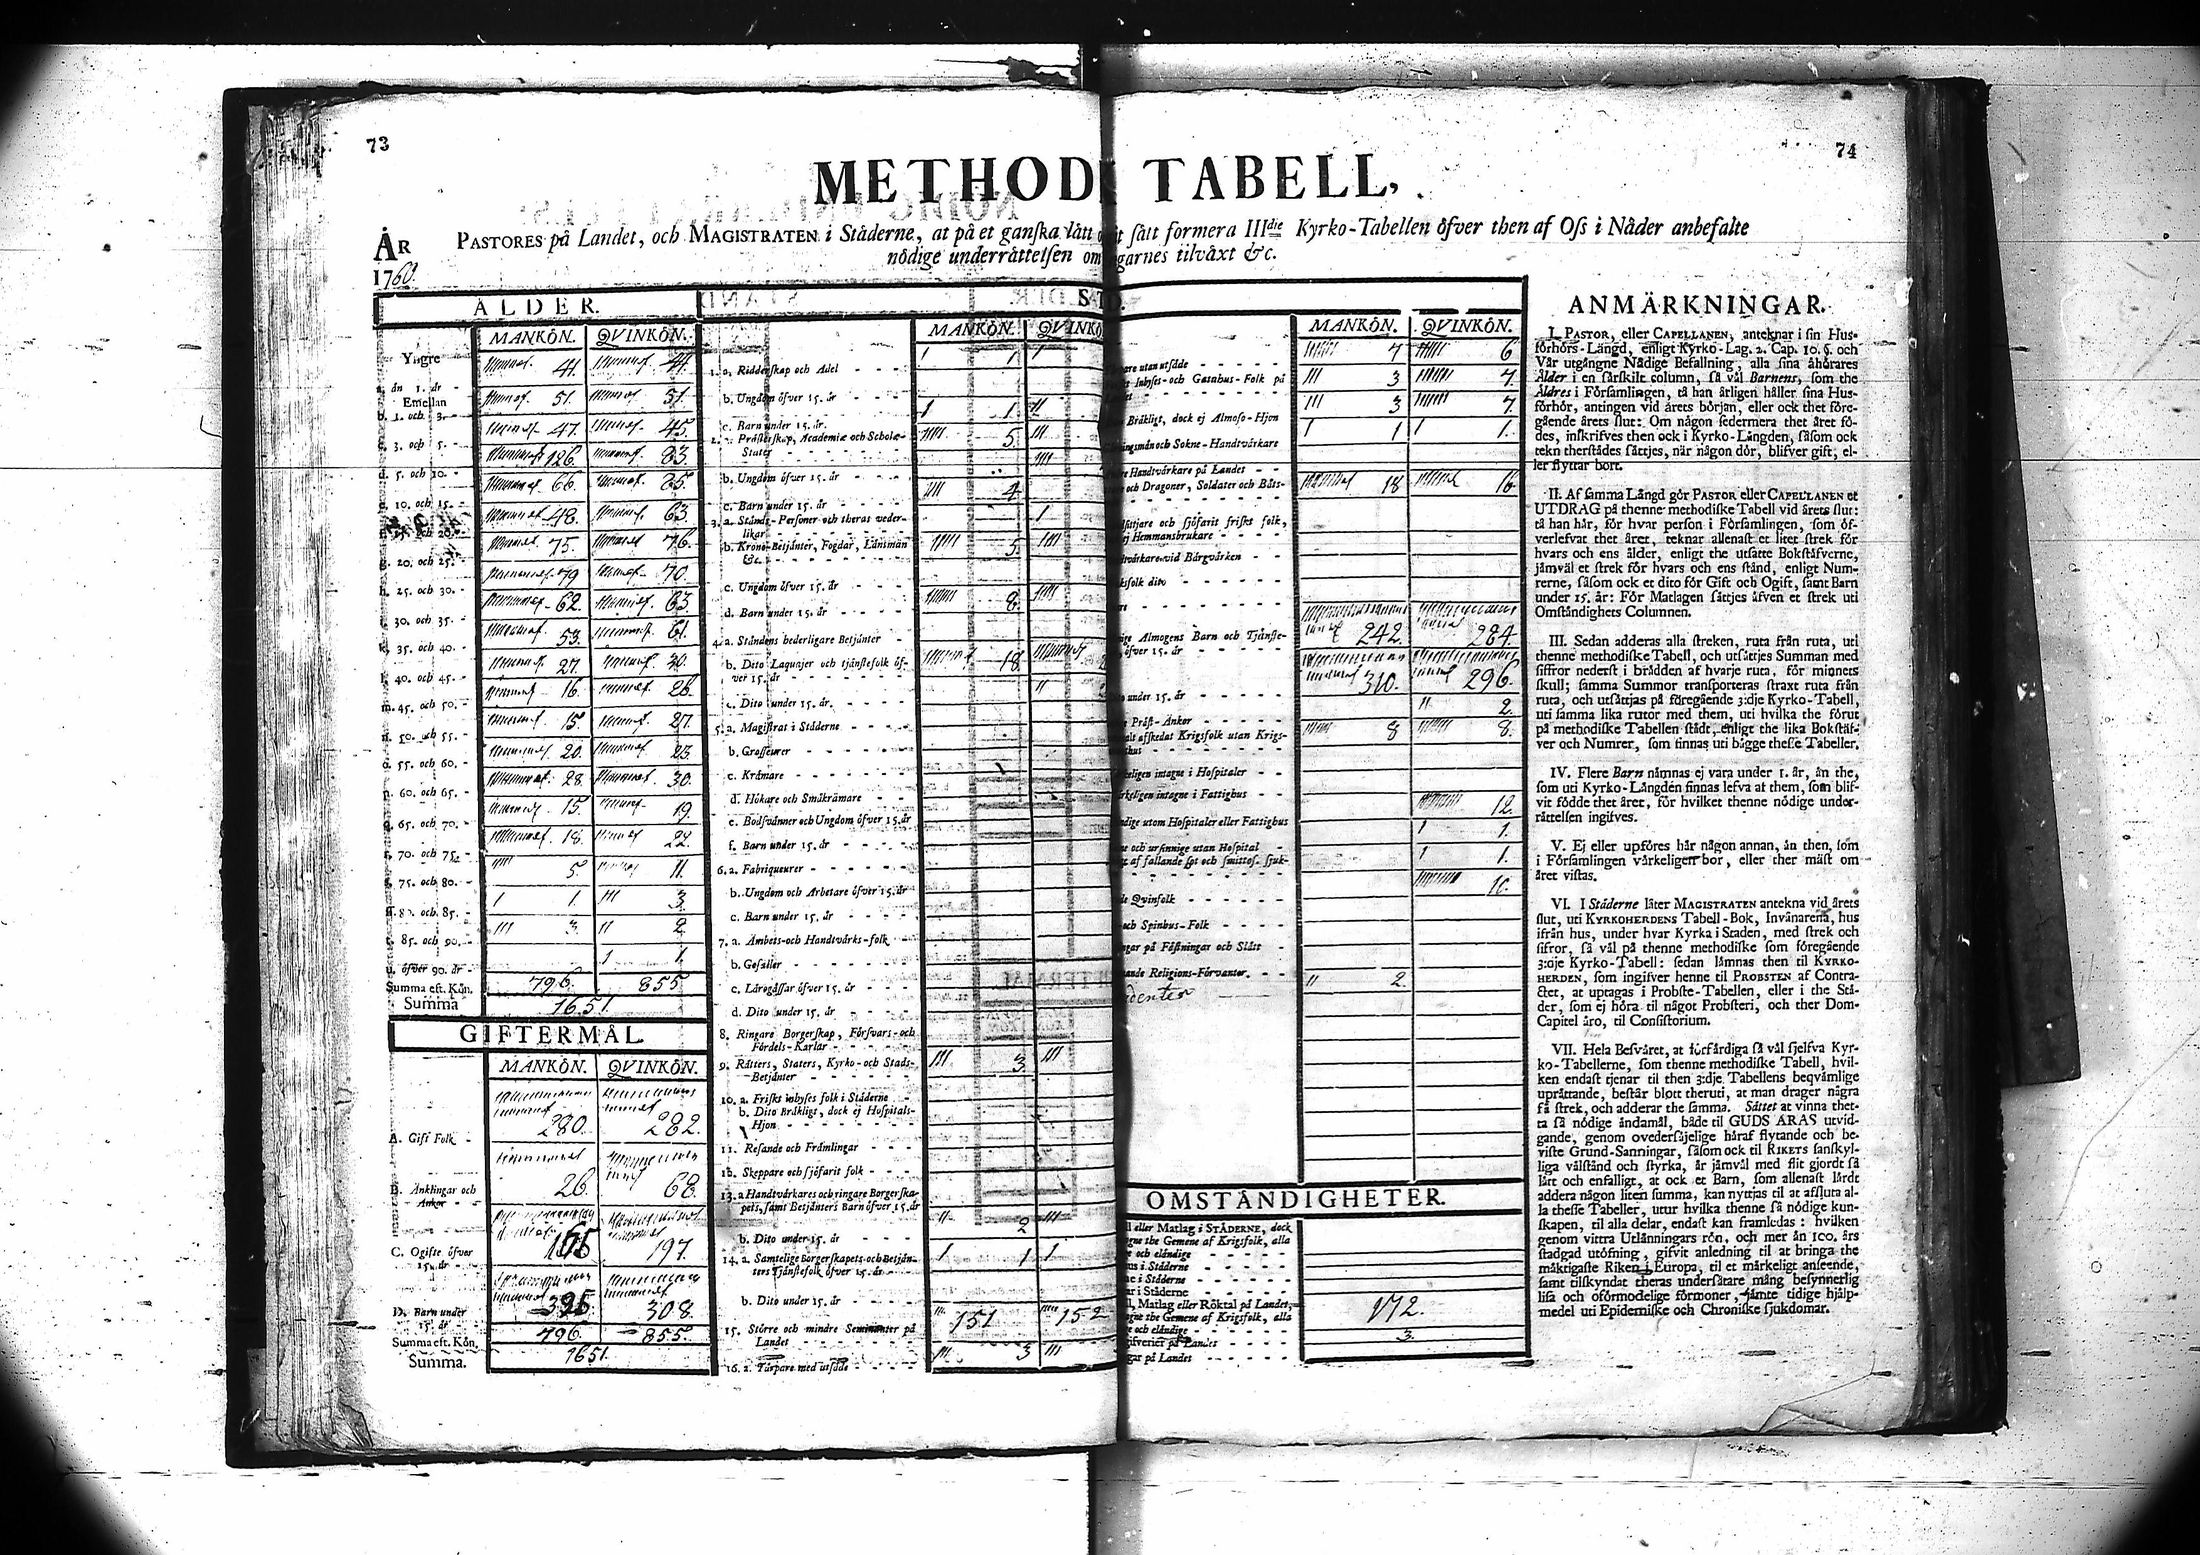 73
74
METHOD TABELL,
ÅR
1760.
PASTORES på Landet, och MAGISTRATEN i Ståderne, at på et ganska lått sått formera IIIdie Kyrko-Tabellen öfver then af Oss i Nåder anbefalte
nödige underråttelsen om garnes tilvåxt &c.
ÅLDER.
MANKÖN. QVINKÖN.
Yngre
a. ån 1. år - 41. 41.
Emellan
b. 1. och 3. - 51. 51.
c. 3. och 5. - 47. 45.
d. 5. och 10. - 126. 83
e. 10. och 15. - 66. 85.
f. 15. och 20. - 48. 63.
g. 20. och 25. - 75. 76.
h. 25. och 30. - 79 70.
i. 30. och 35. - 62. 63.
k. 35. och 40. - 53. 61.
l. 40. och 45. - 27. 30.
m. 45. och 50. - 16. 26.
n. 50. och 55. - 15. 27.
o. 55. och 60. - 20. 23.
p. 60. och 65. - 28. 30.
q. 65. och 70. - 15. 19.
r. 70. och 75. - 18. 22.
s. 75. och 80. - 5 11.
ſſ. 80. och 85. - 1. 3.
t. 85. och 90. - 3. 2.
u. öfver 90. år - 1.
Summa eft. Kön. 796. 855
Summa 1651.
GIFTERMÅL
MANKÖN. QVINKÖN.
A. Gift Folk - 280. 282.
B. Änklingar och
Änkor - 26. 68.
C. Ogifte öfver
15. år - 165 197.
D. Barn under
15. år - 325 308.
Summa eft. Kön. 796. 855.
Summa. 1651.
MANKÖN. QVINKÖ
1. a. Ridderskap och Adel - - - 1
b. Ungdom öfver 15. år
c. Barn under 15. år. 1.
2. a. Pråsterskap, Academiæ och Scholæ-
Stater - - - 5.
b. Ungdom öfver 15. år - - -
c. Barn under 15. år - - - 4
3. a. Stånds-Personer och theras veder-
likar
b. Krono-Betjånter, Fogdar, Lånsmån
&c. - - - 5
c. Ungdom öfver 15. år
d. Barn under 15. år - - - 8.
4. a. Ståndens hederligare Betjånter -
b. Dito Laquajer och tjånstefolk öf-
ver 15. år - - - 18.
c. Dito under 15. år. - - -
5. a. Magistrat i Ståderne - - -
b. Grosseurer - - -
c. Kråmare - - -
d. Hökare och Småkråmare - -
e. Bodsvånner och Ungdom öfver 15. år
f. Barn under 15. år - - -
6. a. Fabriqueurer - - -
b. Ungdom och Arbetare öfver 15. år
c. Barn under 15. år - - -
7. a. Ämbets-och Handtvårks-folk -
b. Gesåller - - -
c. Lårogåssar öfver 15. år - - -
d. Dito under 15. år - - -
8. Ringare Borgerskap, Försvars-och
Fördels-Karlar - - -
9. Råtters, Staters, Kyrko-och Stads-
Betjånter - - - 3.
10. a. Friskt inhyses folk i Ståderne - -
b. Dito Bråkligt, dock ej Hospitals-
Hjon - - -
11. Resande och Fråmlingar - - -
12. Skeppare och sjöfarit folk - - -
13. a. Handtvårkares och ringare Borgerska-
pets, samt Betjånters Barn öfver 15. år
b. Dito under 15. år - - - 2
14. a. Samtelige Borgerskapets-och Betjån-
ters Tjånstefolk öfver 15. år - - - 1
b. Dito under 15. år - - -
15. Större och mindre Hemmanter på
Landet - - - 151 152
16. a. Tårpare med utsåde - - - 3
MANKÖN. QVINKÖN.
are utan utsåde - - - 7 6
Inhyses-och Gåstehus-Folk på
3 7.
Bråkligt, dock ej Almoso-Hjon 3 7.
och Sokne-Handtvårkare 1 1.
Handtvårkare på Landet - -
och Dragoner, Soldater och Båts- 18 16
såttjare och sjöfarit friskt folk,
ej Hemmansbrukare - - -
tvårkare vid Bårgvårken - -
folk dito - - -
Almogens Barn och Tjånste-
öfver 15. år - - - 242. 284.
under 15. år - - - 310. 296.
Pråst-Änkor - - - 2.
afskedat Krigsfolk utan Krigs-
hus - - - 8 8.
keligen intagne i Hospitaler - -
keligen intagne i Fattighus - -
dige utom Hospitaler eller Fattighus 12.
och ursinnige utan Hospital - 1.
af fallande sot och smittos. sjuk-
1.
de Qvinfolk - - - 10.
och Spinhus-Folk - - -
ngar på Fåstningar och Slått - -
ande Religions-Förvanter. - - 2.
OMSTÅNDIGHETER.
eller Matlag i STÅDERNE, dock
gne the Gemene af Krigsfolk, alla
och elåndige - - -
i Ståderne - - -
i Ståderne - - -
i Ståderne - - -
Matlag eller Röktal på Landet,
gne the Gemene af Krigsfolk, alla
och elåndige - - - 172.
på Landet - - - 3.
på Landet - - -
ANMÄRKNINGAR.
I. PASTOR, eller CAPELLANEN, anteknar i sin Hus-
förhörs-Långd, enligt Kyrko-Lag. 2. Cap. 10. §. och
Vår utgångne Nådige Befallning, alla sina åhörares
Ålder i en sårskilt column, så vål Barnens, som the
Äldres i Församlingen, tå han årligen håller sina Hus-
förhör, antingen vid årets början, eller ock thet före-
gående årets slut: Om någon sedermera thet året fö-
des, inskrifves then ock i Kyrko-Långden, såsom ock
tekn therstådes såttjes, når någon dör, blifver gift, el-
ler flyttar bort.
II. Af samma Långd gör PASTOR eller CAPELLANEN et
UTDRAG på thenne methodiske Tabell vid årets slut:
tå han hår, för hvar person i Församlingen, som öf-
verlefvat thet året, teknar allenast et litet strek för
hvars och ens ålder, enligt the utsatte Bokståfverne,
jåmvål et strek för hvars och ens stånd, enligt Num-
rerne, såsom ock et dito för Gift och Ogift, samt Barn
under 15. år: För Matlagen såttjes åfven et strek uti
Omståndighets Columnen.
III. Sedan adderas alla streken, ruta från ruta, uti
thenne methodiske Tabell, och utsåttjes Summan med
siffror nederst i brådden af hvarje ruta, för minnets
skull; samma Summor transporteras straxt ruta från
ruta, och utsåttjas på föregående 3:dje Kyrko-Tabell,
uti samma lika rutor med them, uti hvilka the förut
på methodiske Tabellen stådt, enligt the lika Bokståf-
ver och Numrer, som finnas uti bågge thesse Tabeller.
IV. Flere Barn nåmnas ej vara under 1. år, ån the,
som uti Kyrko-Långden finnas lefva af them, som blif-
vit födde thet året, för hvilket thenne nödige under-
råttelsen ingifves.
V. Ej eller upföres hår någon annan, ån then, som
i Församlingen vårkeligen bor, eller ther måst om
året vistas.
VI. I Ståderne låter MAGISTRATEN antekna vid årets
slut, uti KYRKOHERDENS Tabell-Bok, Invånarena, hus
ifrån hus, under hvar Kyrka i Staden, med strek och
sifror, så vål på thenne methodiske som föregående
3:dje Kyrko-Tabell: sedan låmnas then til KYRKO-
HERDEN, som ingifver henne til PROBSTEN af Contra-
ctet, at uptagas i Probste-Tabellen, eller i the Stå-
der, som ej höra til något Probsteri, och ther Dom-
Capitel åro, til Consistorium.
VII. Hela Besvåret, at förfårdiga så vål sjelfva Kyr-
ko-Tabellerne, som thenne methodiske Tabell, hvil-
ken endast tjenar til then 3:dje Tabellens beqvåmlige
upråttande, består blott theruti, at man drager några
få strek, och adderar the samma. Såttet at vinna thet-
ta så nödige åndamål, både til GUDS ÅRAS utvid-
gande, genom ovedersåjelige håraf flytande och be-
viste Grund-Sanningar, såsom ock til RIKETS sanskyl-
liga vålstånd och styrka, år jåmvål med flit gjordt så
lått och enfalligt, at ock et Barn, som allenast lårdt
addera någon liten summa, kan nyttjas til at afsluta al-
la thesse Tabeller, utur hvilka thenne så nödige kun-
skapen, til alla delar, endast kan framledas: hvilken
genom vittra Utlånningars rön, och mer ån 100. års
stadgad utöfning, gifvit anledning til at bringa the
måktigaste Riken i Europa, til et mårkeligt anseende,
samt tilskyndat theras undersåtare mång besynnerlig
lisa och oförmodelige förmoner, jåmte tidige hjålp-
medel uti Epidemiske och Chroniske sjukdomar.